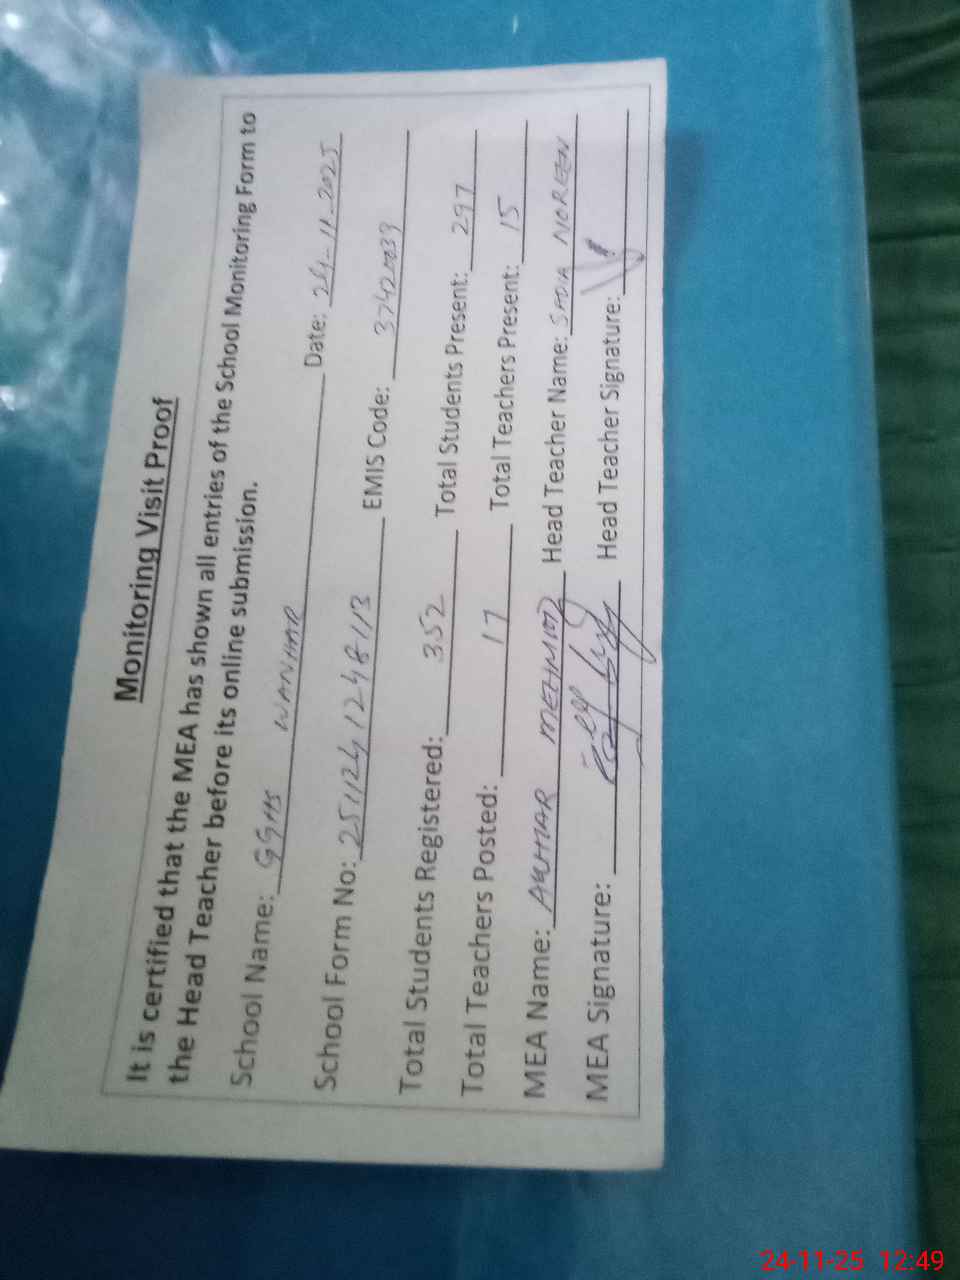 Monitoring Visit Proof
It is certified that the MEA has shown all entries of the School Monitoring Form to
the Head Teacher before its online submission.
School Name: GGHS WANHAR Date: 24-11-2025
School Form No: 2511241248113 EMIS Code:
Total Students Registered: 352 Total Students Present: 297
Total Teachers Posted: 17 Total Teachers Present: 15
MEA Name: MEHMOOD Head Teacher Name: SADIA NOREEN
MEA Signature: Head Teacher Signature:
24-11-25 12:49